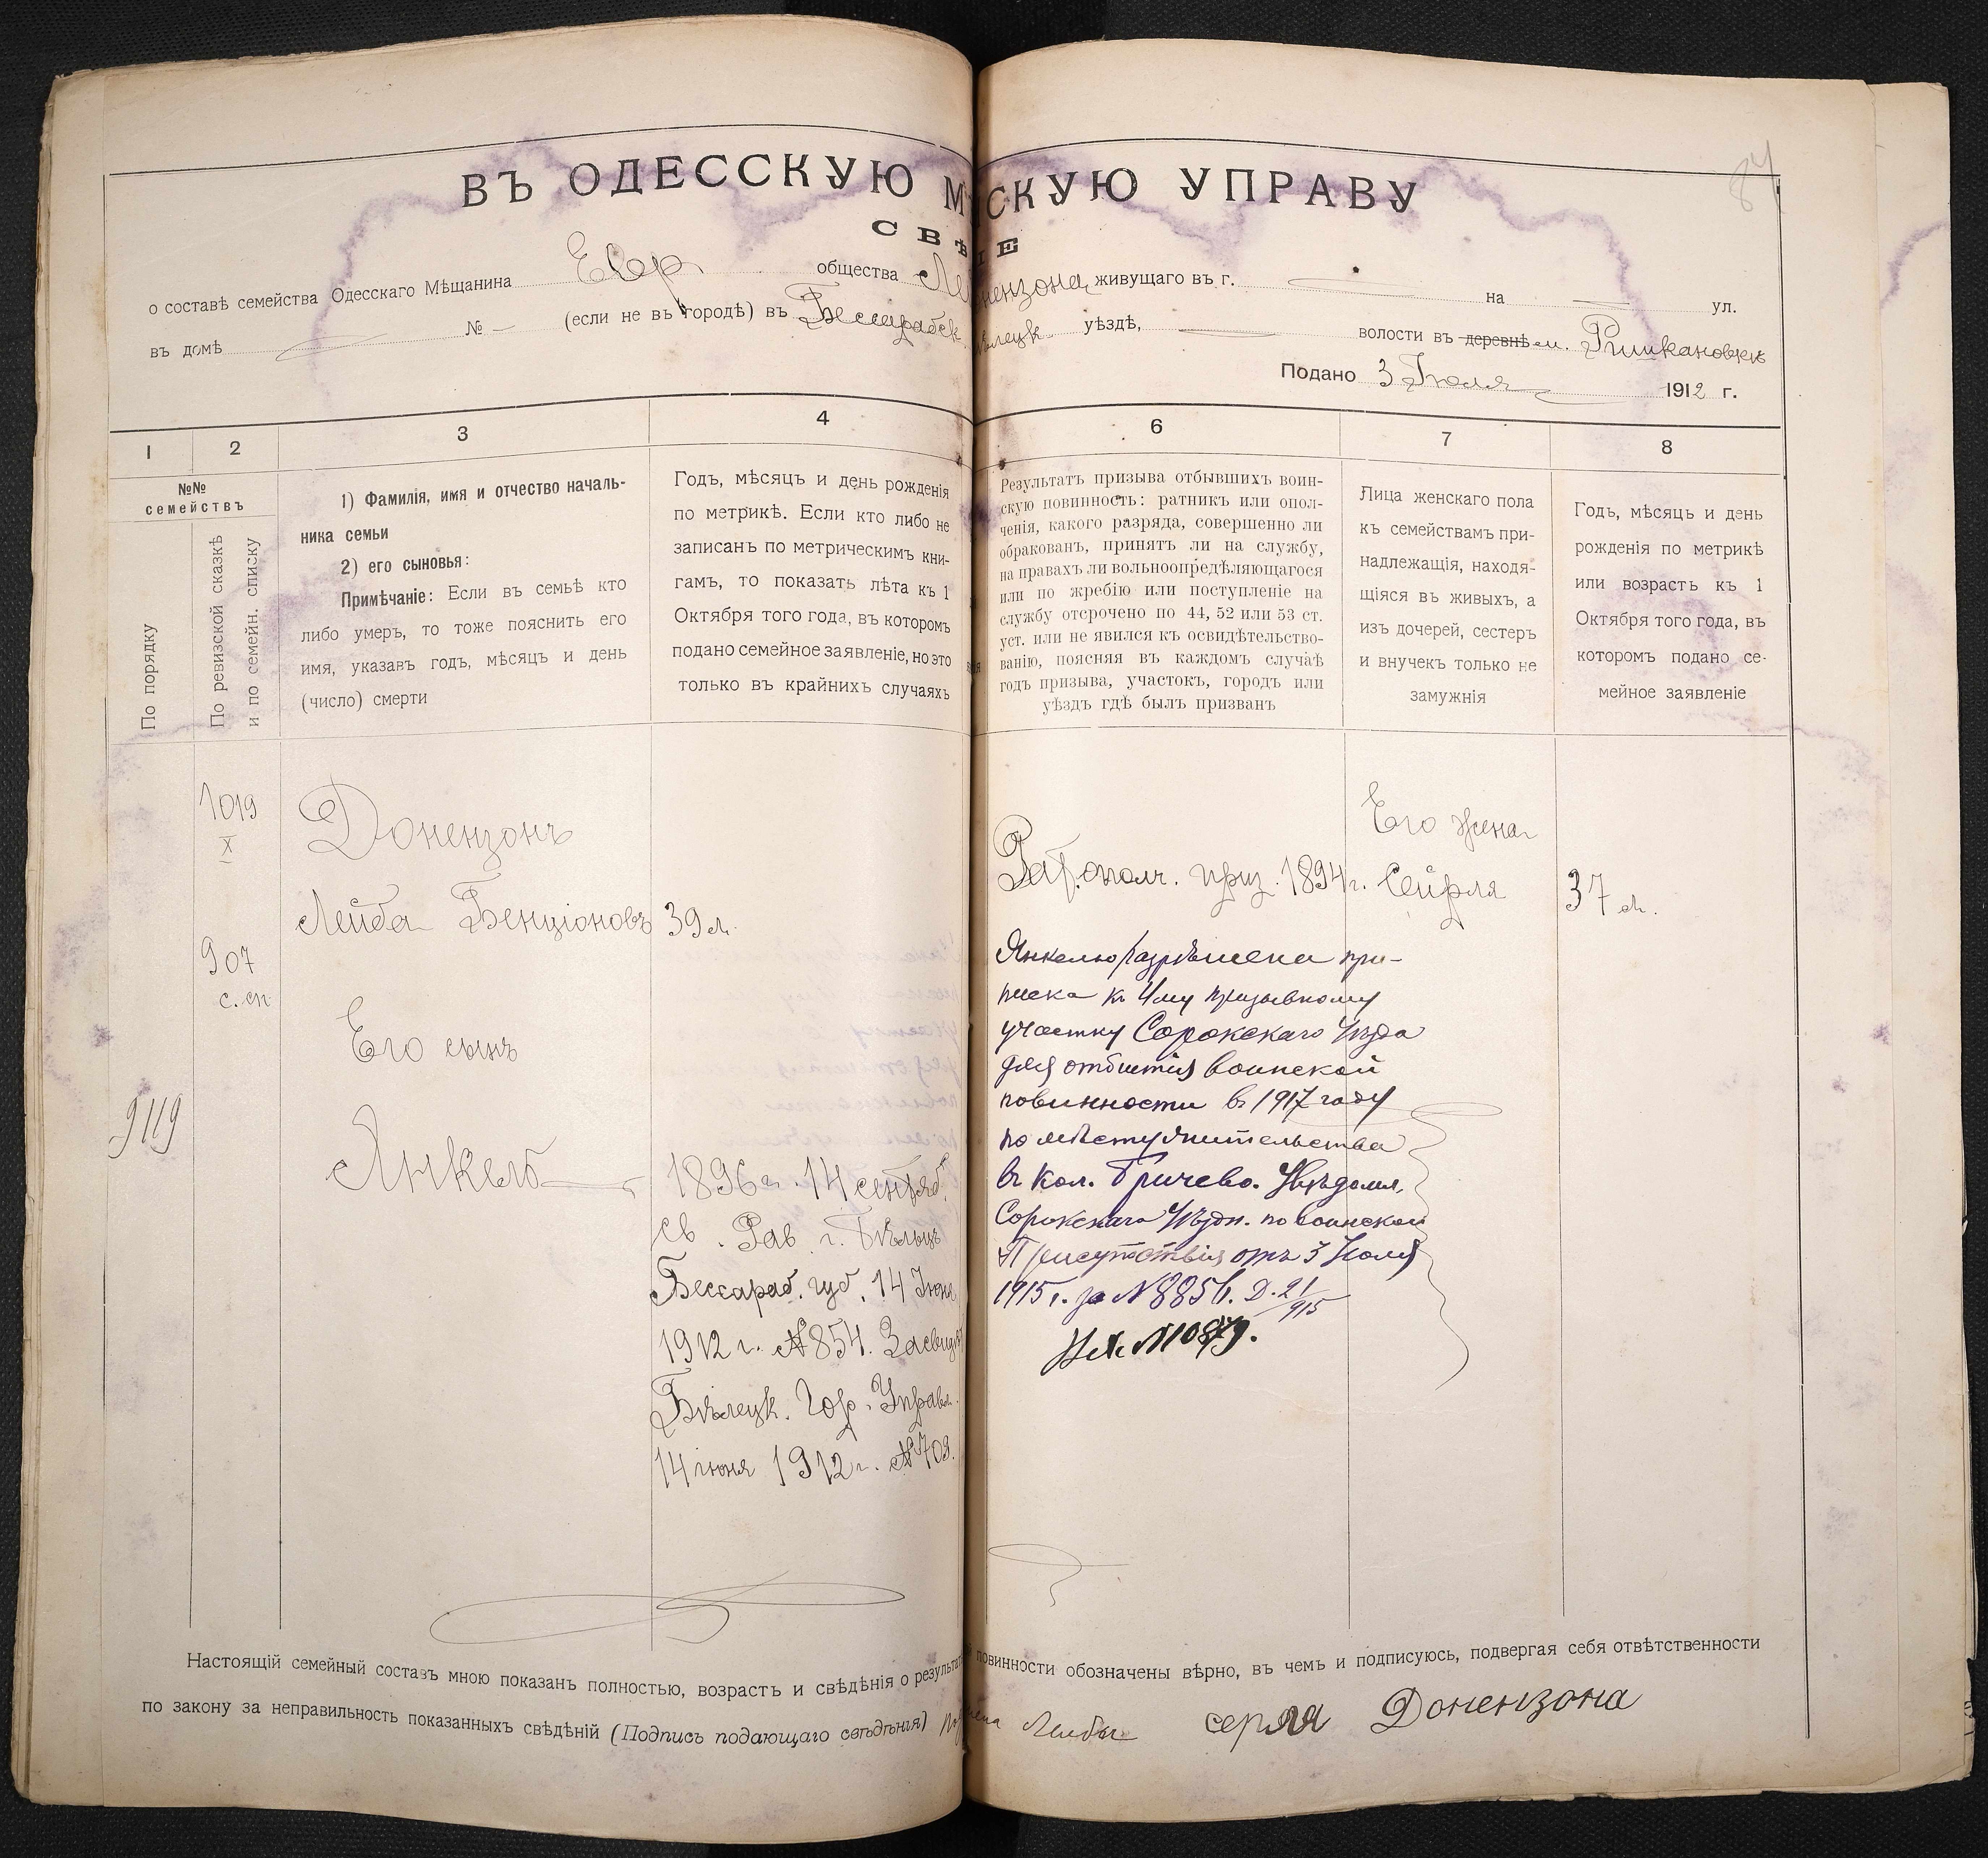 84
ВЪ ОДЕССКУЮ М СКУЮ УПРАВУ
СВѢ ІЕ
о составѣ семейства Одесскаго Мѣщанина Евр общества Ле Донензона живущаго въ г. — на — ул.
въ домѣ — № — (если не въ городѣ) въ Бессарабск. Бѣлецк уѣздѣ, — волости въ деревнѣ м. Рышкановкѣ
Подано 3 Іюля 1912 г.
1 2 3 4 6 7 8
№№ семействъ
По порядку
По ревизской сказкѣ
и по семейн. списку
1) Фамилія, имя и отчество началь-
ника семьи
2) его сыновья:
Примѣчаніе: Если въ семьѣ кто
либо умеръ, то тоже пояснить его
имя, указавъ годъ, мѣсяцъ и день
(число) смерти
Годъ, мѣсяцъ и день рожденія
по метрикѣ. Если кто либо не
записанъ по метрическимъ кни-
гамъ, то показать лѣта къ 1
Октября того года, въ которомъ
подано семейное заявленіе, но это
только въ крайнихъ случаяхъ
Результатъ призыва отбывшихъ воин-
скую повинность: ратникъ или опол-
ченія, какого разряда, совершенно ли
обракованъ, принятъ ли на службу,
на правахъ ли вольноопредѣляющагося
или по жребію или поступленіе на
службу отсрочено по 44, 52 или 53 ст.
уст. или не явился къ освидѣтельство-
ванію, поясняя въ каждомъ случаѣ
годъ призыва, участокъ, городъ или
уѣздъ гдѣ былъ призванъ
Лица женскаго пола
къ семействамъ при-
надлежащія, находя-
щіяся въ живыхъ, а
изъ дочерей, сестеръ
и внучекъ только не
замужнія
Годъ, мѣсяцъ и день
рожденія по метрикѣ
или возрастъ къ 1
Октября того года, въ
которомъ подано се-
мейное заявленіе
1019
X
907
с. сп
9119
Донензонъ
Лейба Бенціоновъ 39 л.
Его сынъ
Янкель
1896 г. 14 сентяб.
св. Рав. г. Бѣльцъ
Бессараб. губ. 14 Іюня
1912 г. № 854. Засвид
Бѣлецк. Гор. Управл.
14 июня 1912 г. № 709.
Рат. ополч. приз. 1894 г.
Янкелю разрѣшена при-
писка к 4му призывному
участку Сорокскаго Уѣзда
для отбытія воинской
повинности в 1917 году
по мѣсту жительства
в кол. Бричево. Увѣдомл.
Сорокскаго Уѣздн. по воинской
Присутствія отъ 3 Іюля
1915 г. за № 8856. Д. 21/915
Вх № 10879.
Его жена
Сейрля
37 л.
Настоящій семейный составъ мною показанъ полностью, возрастъ и свѣдѣнія о результат повинности обозначены вѣрно, въ чемъ и подписуюсь, подвергая себя отвѣтственности
по закону за неправильность показанныхъ свѣдѣній (Подпись подающаго свѣдѣнія) Лейбы серля Донензона